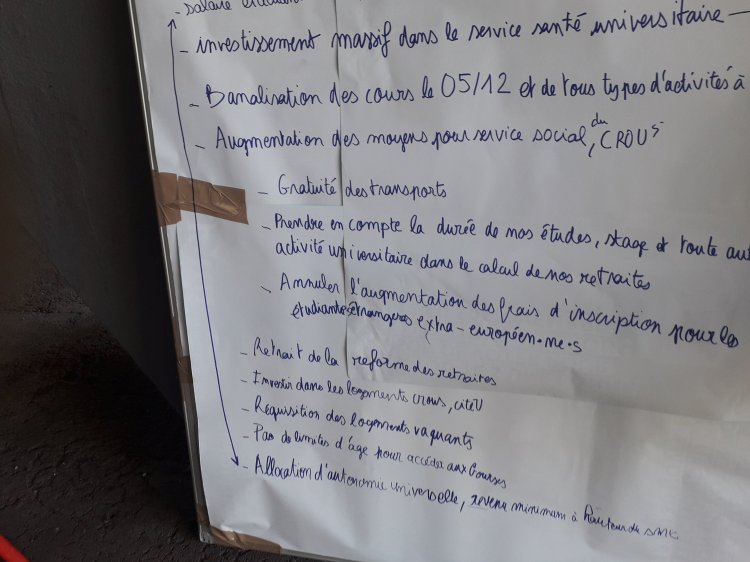 - salaire étudiant
- investissement massif dans le service santé universitaire -
- Banalisation des cours le 05/12 et de tous types d'activités à
- Augmentation des moyens pour service social, du CROUS
- Gratuité des transports
- Prendre en compte la durée de nos études, stage et toute aut
activité universitaire dans le calcul de nos retraites
- Annuler l'augmentation des frais d'inscription pour les
étudiantes étrangères extra-européen·ne·s
- Retrait de la réforme des retraites
- Investir dans les logements crous, cité U
- Réquisition des logements vaquants
- Pas de limites d'âge pour accéder aux bourses
- Allocation d'autonomie universelle, revenu minimum à hauteur du SMIC